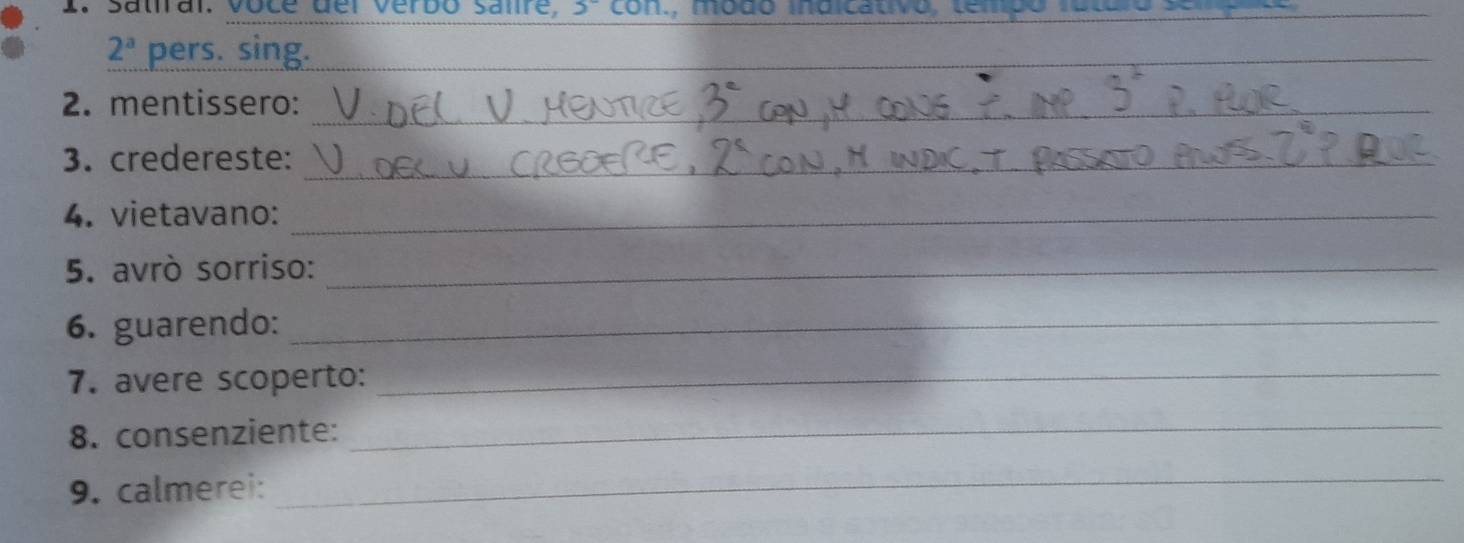 1. salirai: voce del verbo salire, 3ª con., modo indicativo, tempo futuro semplice,
2ª pers. sing.
2. mentissero: V. DEL V. MENTIRE, 3ª CON, M. CONG T. IMP. 3ª P. PLUR.
3. credereste: V. DEL V CREDERE, 2ª CON, M INDIC, T PASSATO 2ª P PLUR
4. vietavano:
5. avrò sorriso:
6. guarendo:
7. avere scoperto:
8. consenziente:
9. calmerei: